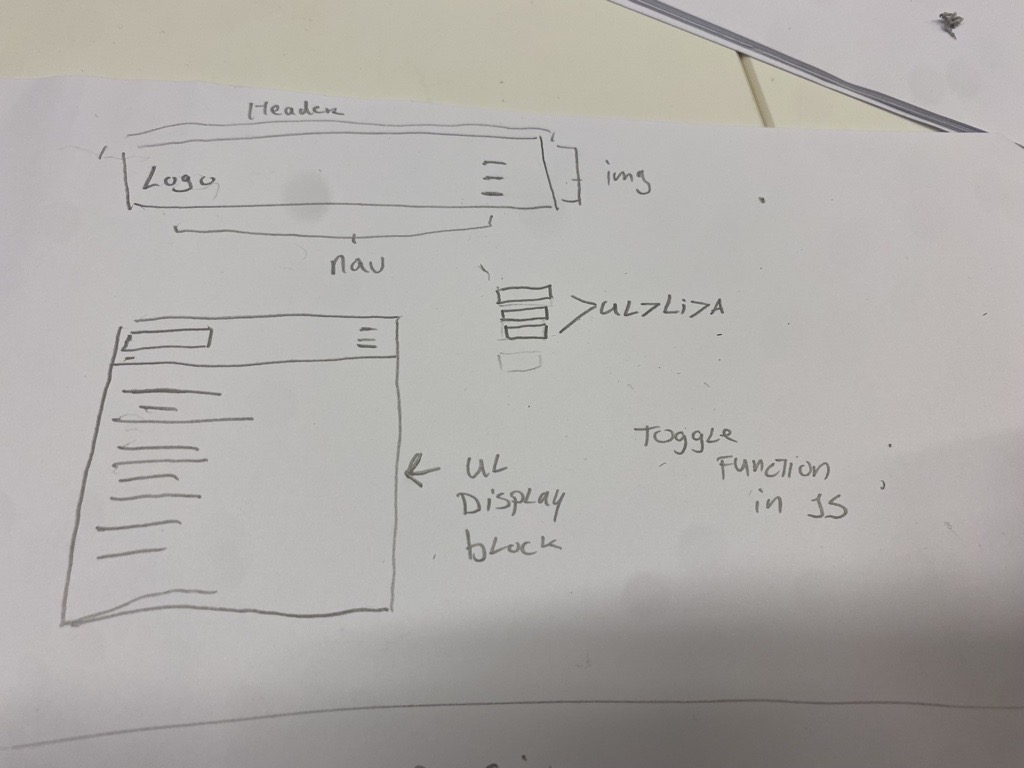 Header
Logo
img
nav
>UL>Li>A
UL
Display
block
Toggle
Function
in JS